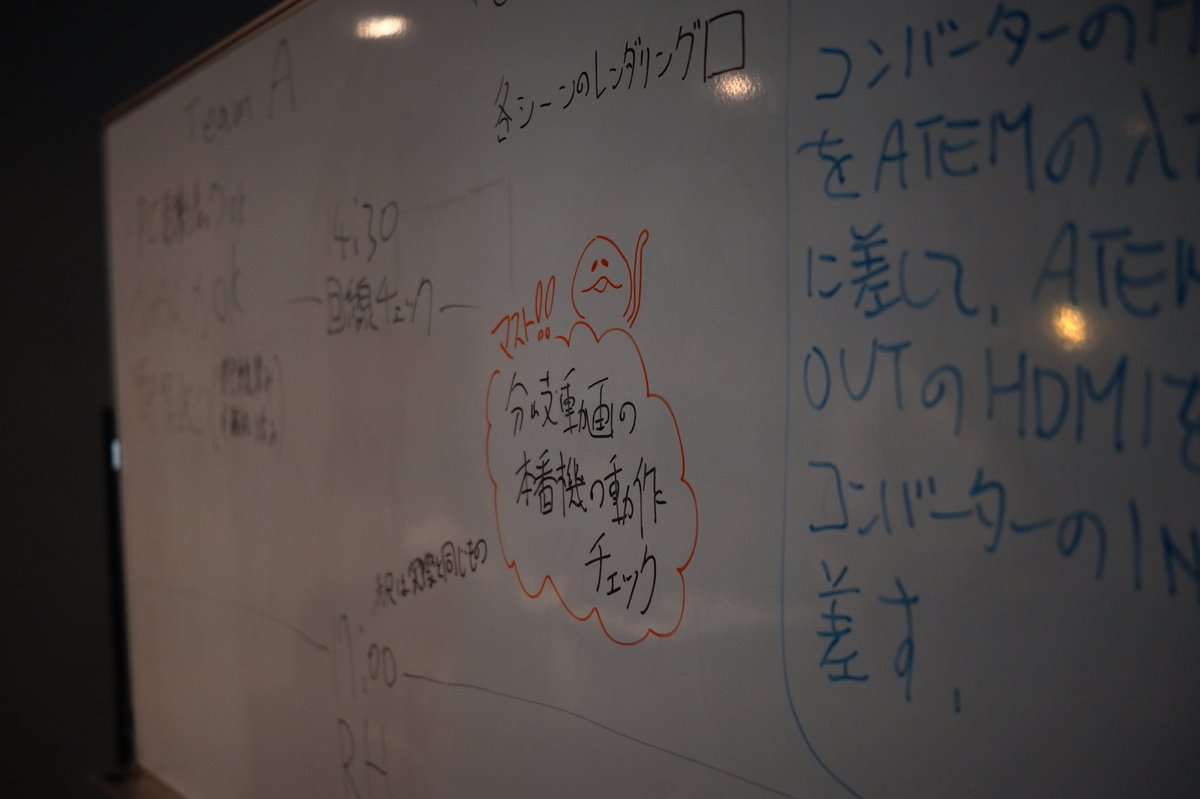 Team A
各シーンのレンダリング
14:30
回線チェック
マスト!!
分岐動画の
本番機の動作
チェック
は実際と同じもの
17:00
RH
コンバーターの
をATEMの入
に差して、ATEM
OUTのHDMIを
コンバーターのIN
差す、